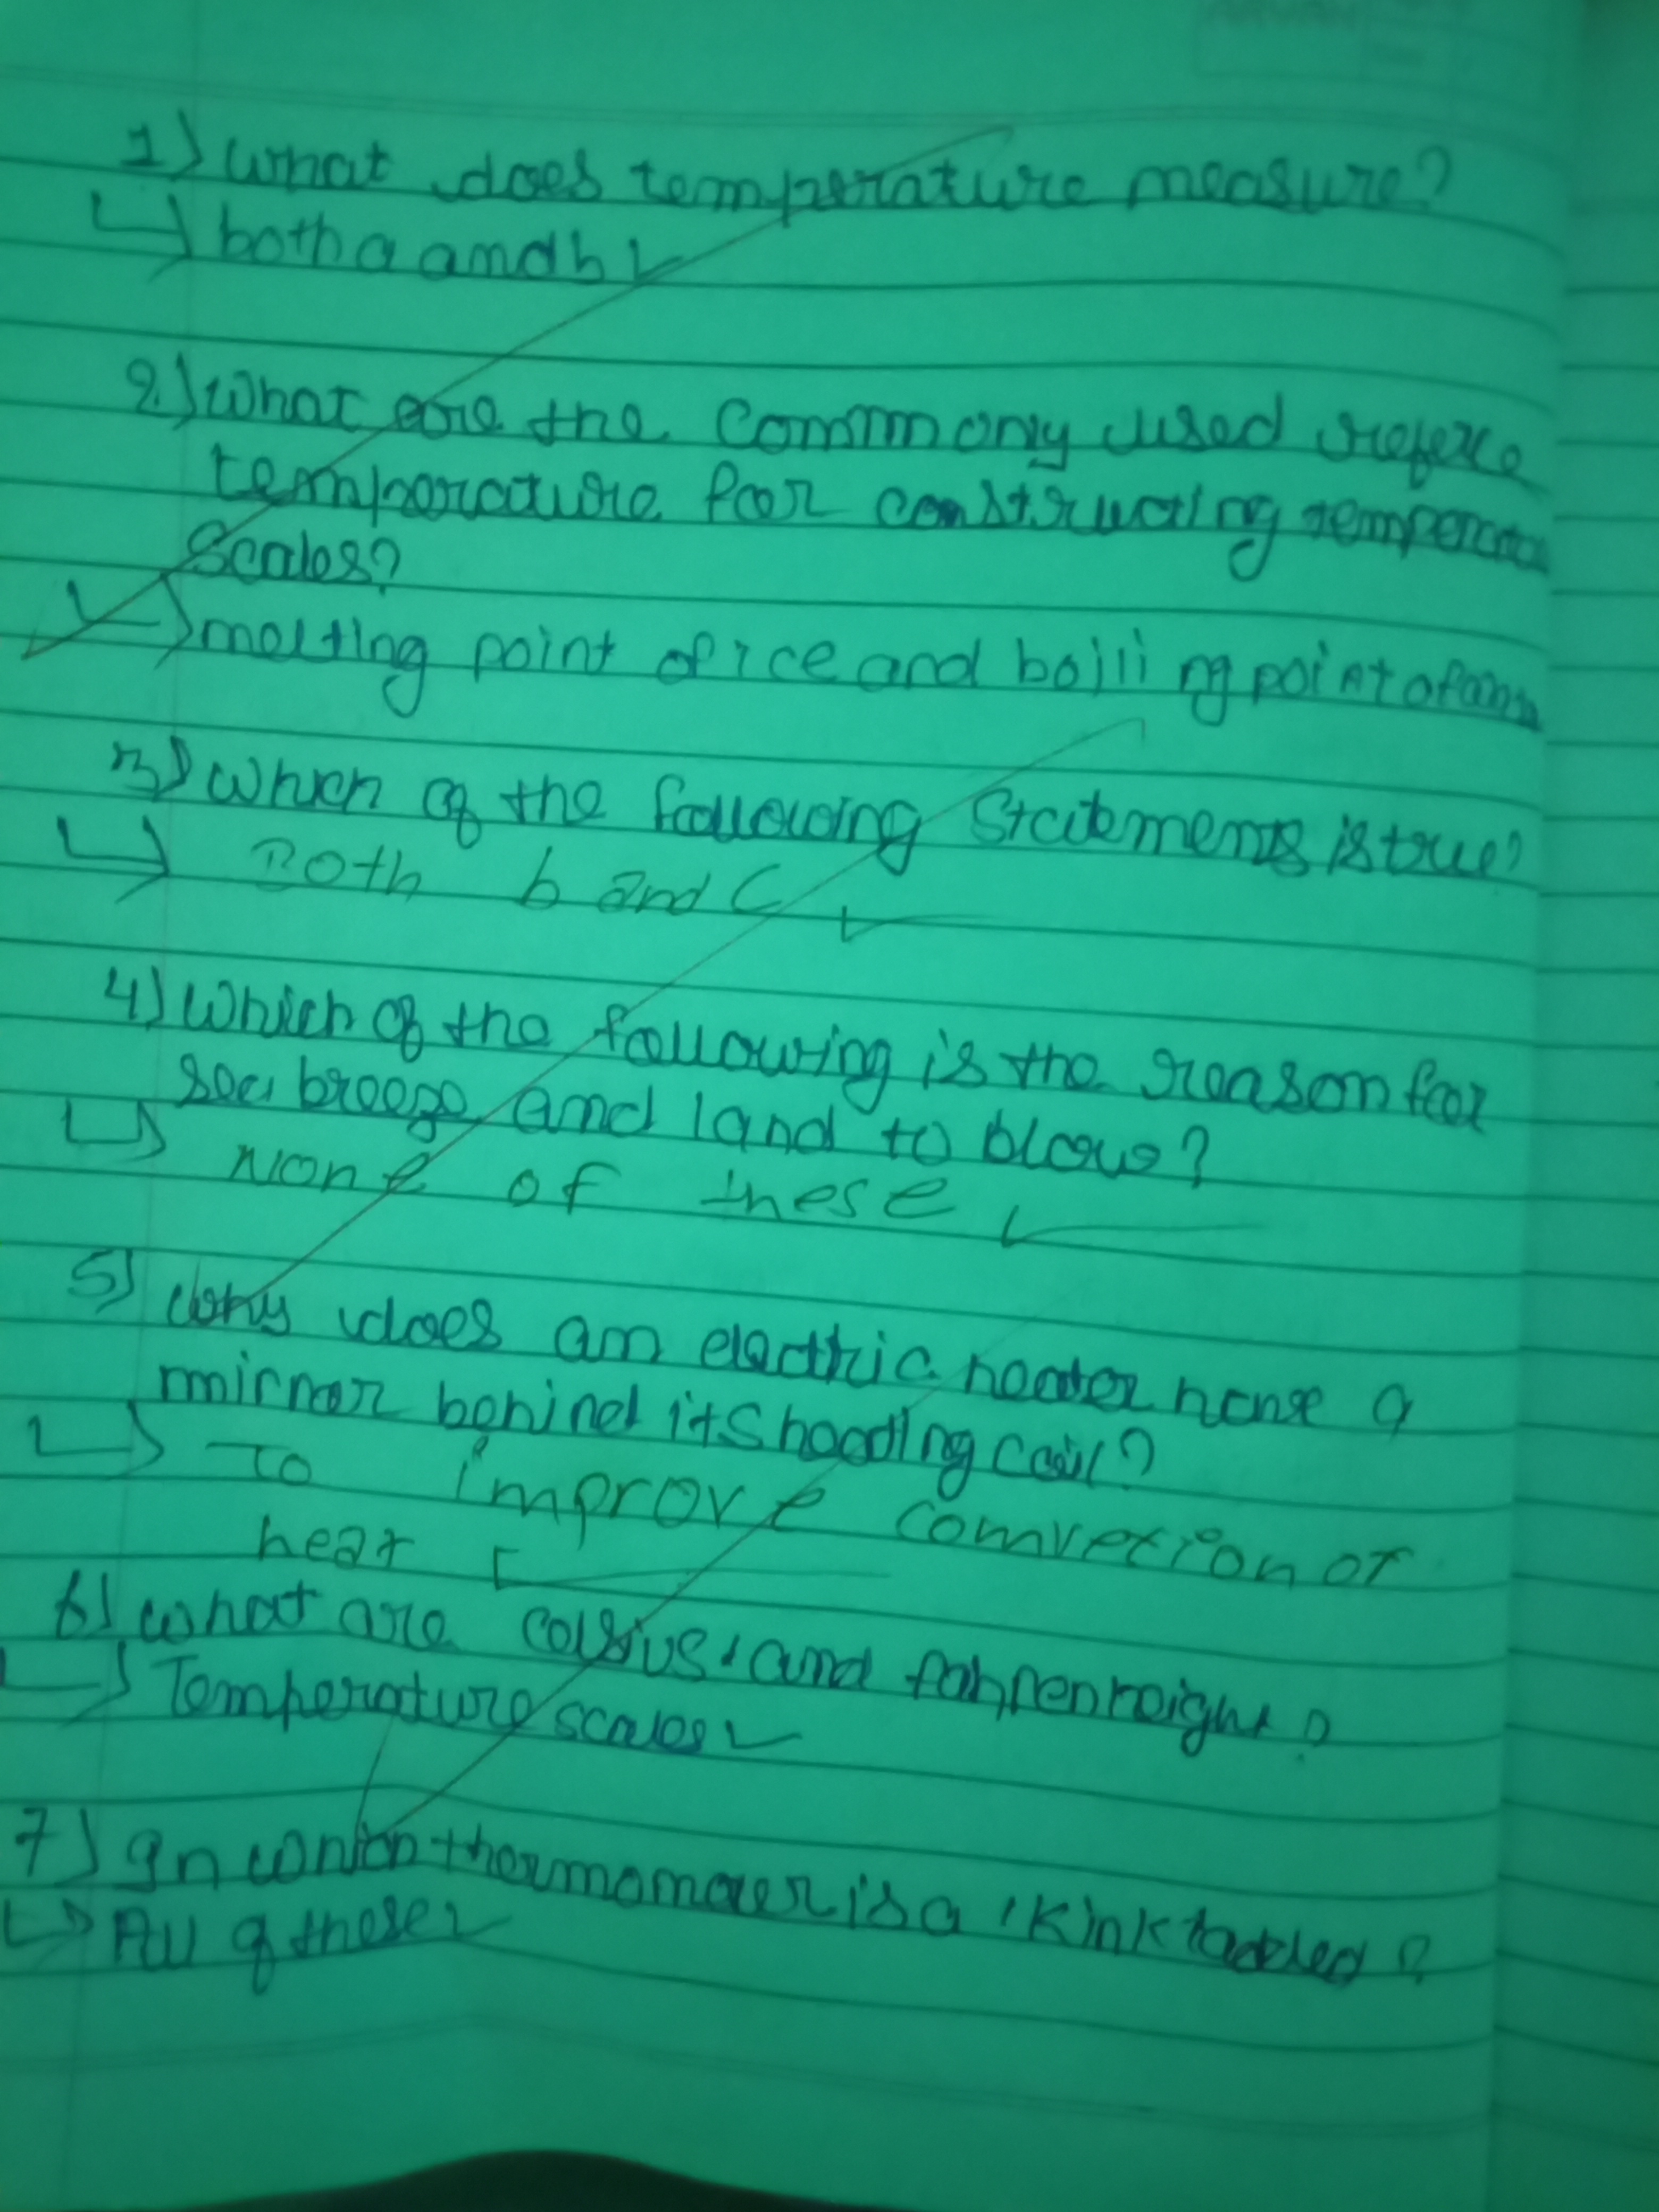 1) What does temperature measure?
↳ both a and b
2) What are the Commony used refere
temperature for constructing temperat
Scales?
↳ melting point of ice and boiling point of
3) Which of the following Statements is true?
↳ Both b and C
4) Which of the following is the reason for
sea breeze and land to blow?
↳ None of these
5) Why does an electric heater have a
mirror behind its heating coil?
↳ To improve Convetion of
heat
6) What are Celsius and fahrenheight?
↳ Temperature scales
7) In which thermometer is a kink
↳ All of these